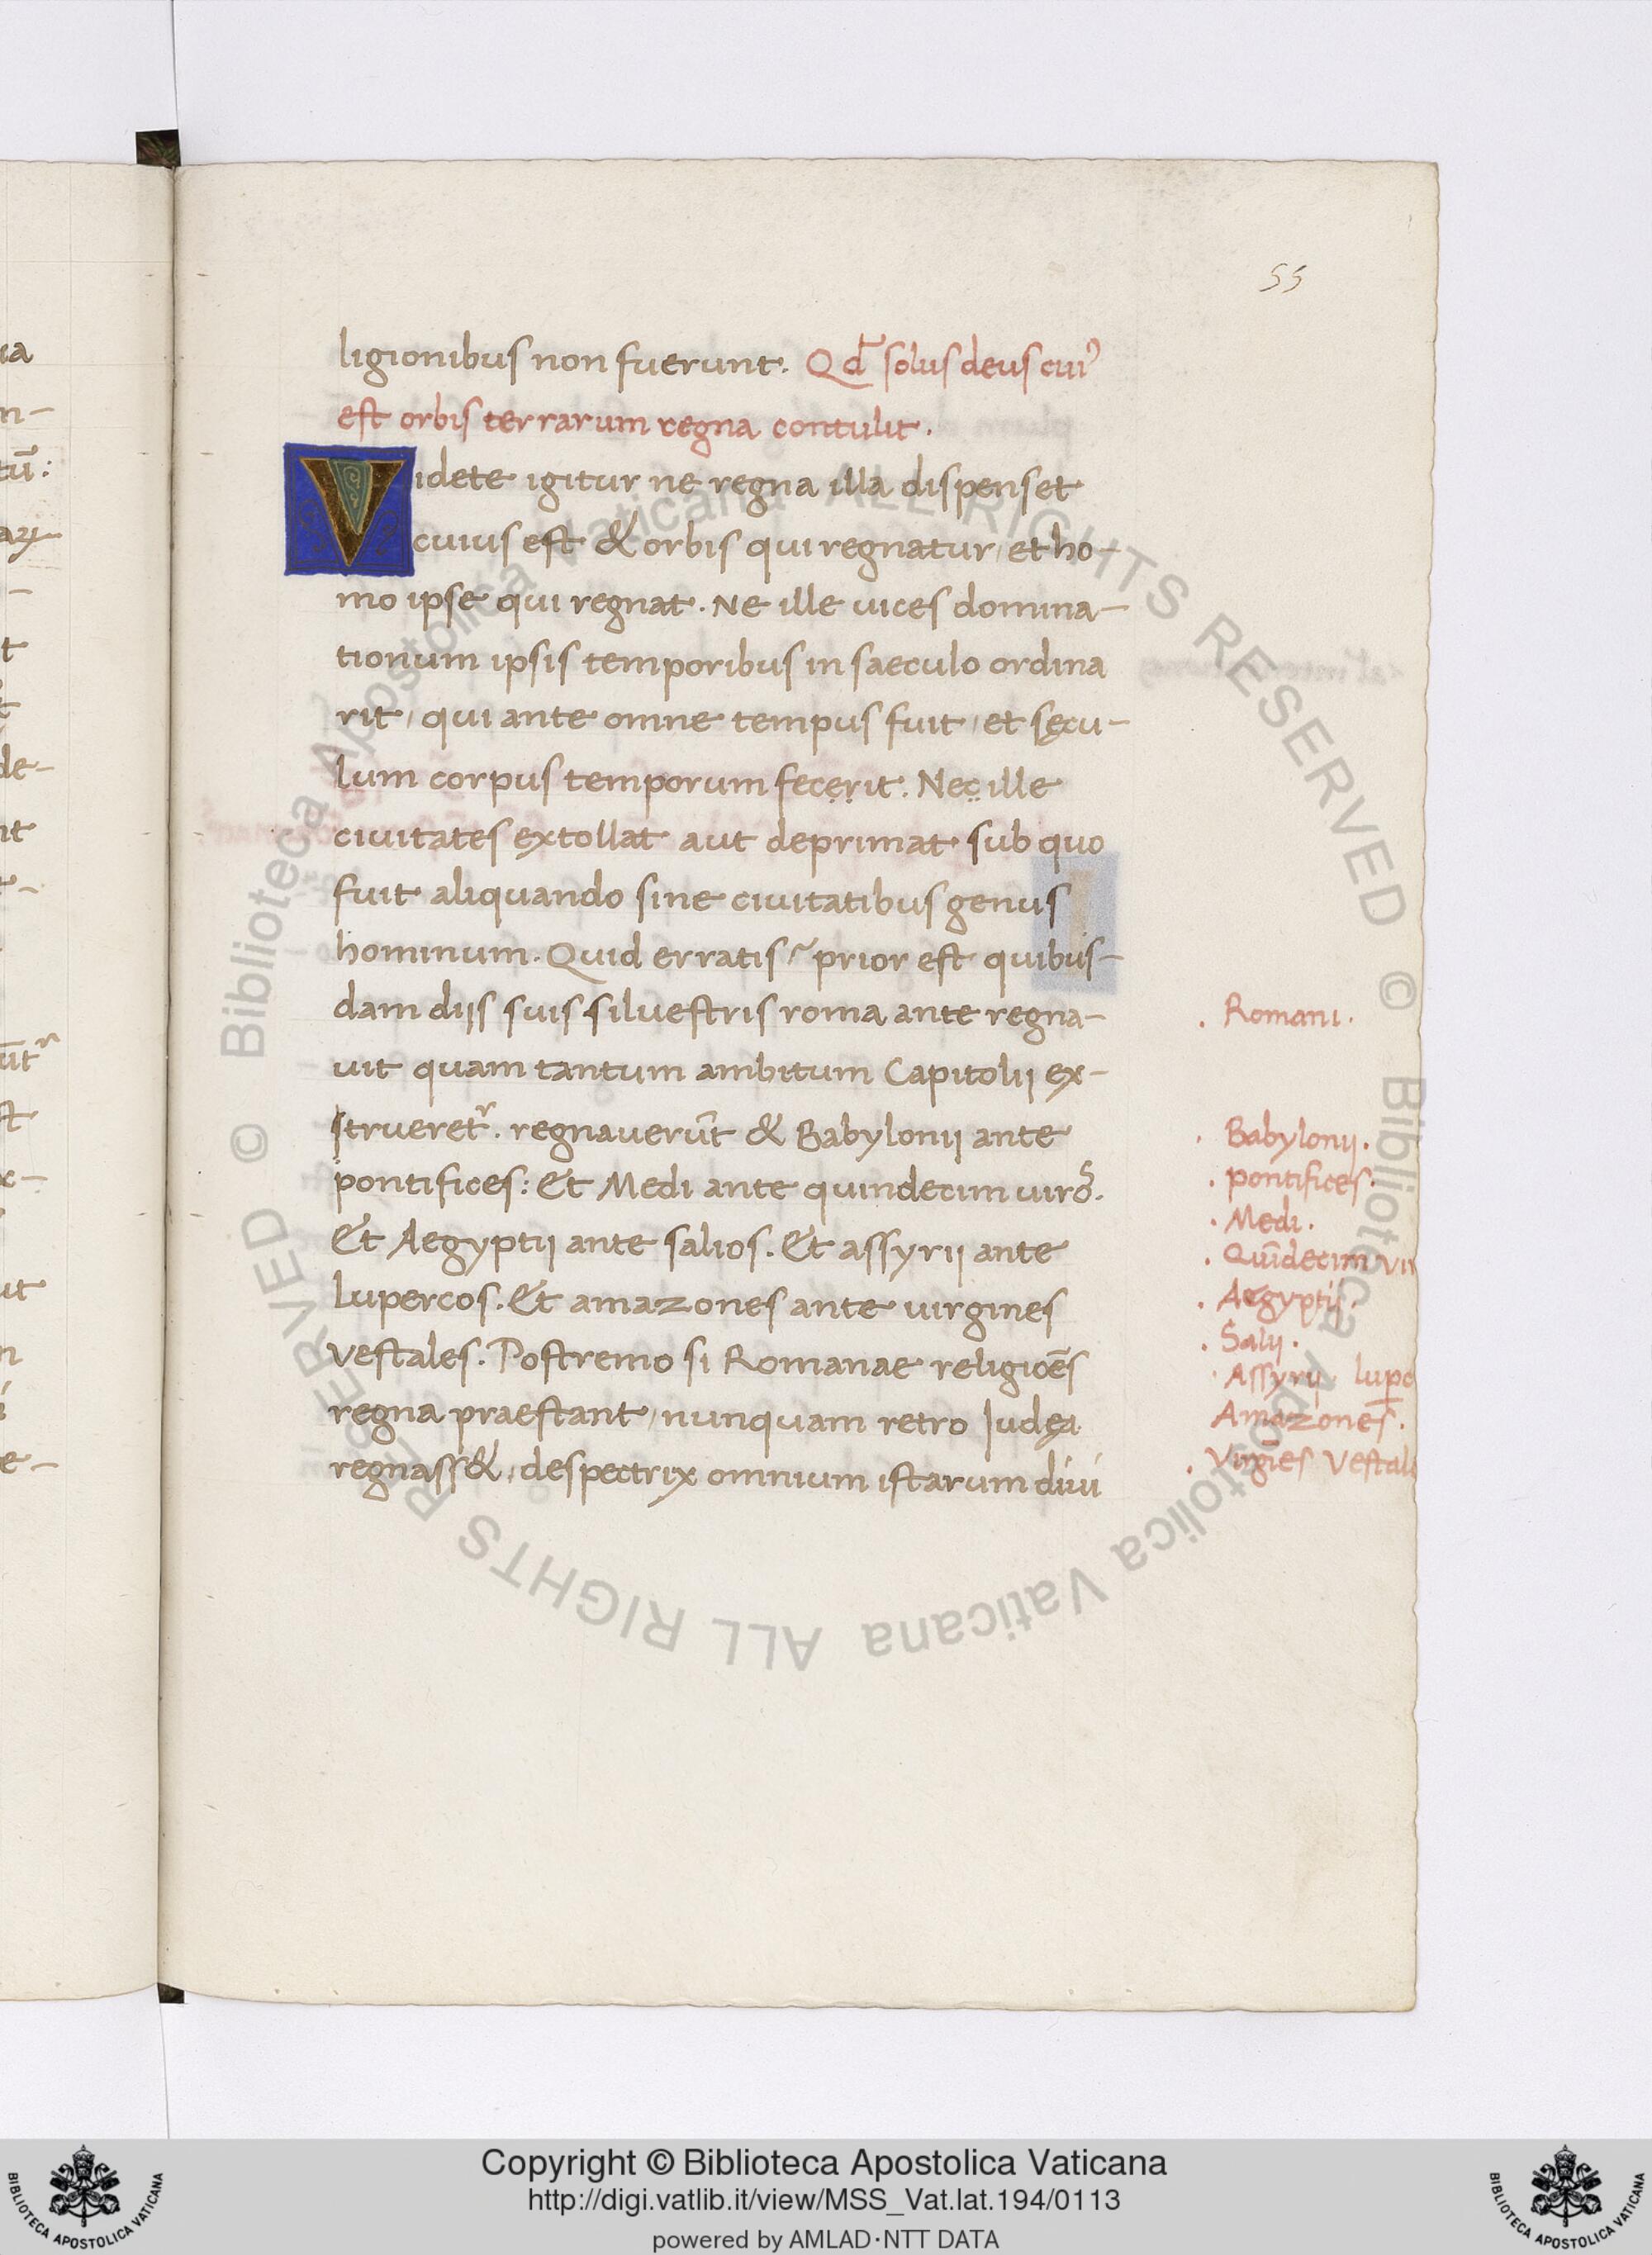 55
ligionibus non fuerunt. Qd̅ solus deus cui᾽
est orbis terrarum regna contulit.
Videte igitur ne regna illa dispenset
cuius est & orbis qui regnatur, et ho-
mo ipse qui regnat. Ne ille uices domina-
tionum ipsis temporibus in saeculo ordina
rit, qui ante omne tempus fuit, et sęcu-
lum corpus temporum fecerit. Nec ille
ciuitates extollat aut deprimat sub quo
fuit aliquando sine ciuitatibus genus
hominum. Quid erratis? prior est quibus-
dam diis suis siluestris roma ante regna-
uit quam tantum ambitum Capitolii ex-
strueretʳ. regnauerūt & Babylonii ante
pontifices: Et Medi ante quindecim uiroᷤ.
Et Aegyptii ante salios. Et assyrii ante
lupercos. Et amazones ante uirgines
vestales. Postremo si Romanae religioēs
regna praestant, nunquam retro Iudęa
regnass&, despectrix omnium istarum diui
. Romani.
. Babylonii.
. pontifices.
. Medi.
. Quīdecim vir
. Aegyptii.
. Salii.
. Assyrii. lup̅c
Amazones.
. Virgīes Vestal
Copyright © Biblioteca Apostolica Vaticana
http://digi.vatlib.it/view/MSS_Vat.lat.194/0113
powered by AMLAD·NTT DATA
BIBLIOTECA APOSTOLICA VATICANA
BIBLIOTECA APOSTOLICA VATICANA
© Biblioteca Apostolica Vaticana ALL RIGHTS RESERVED © Biblioteca Apostolica Vaticana ALL RIGHTS RESERVED